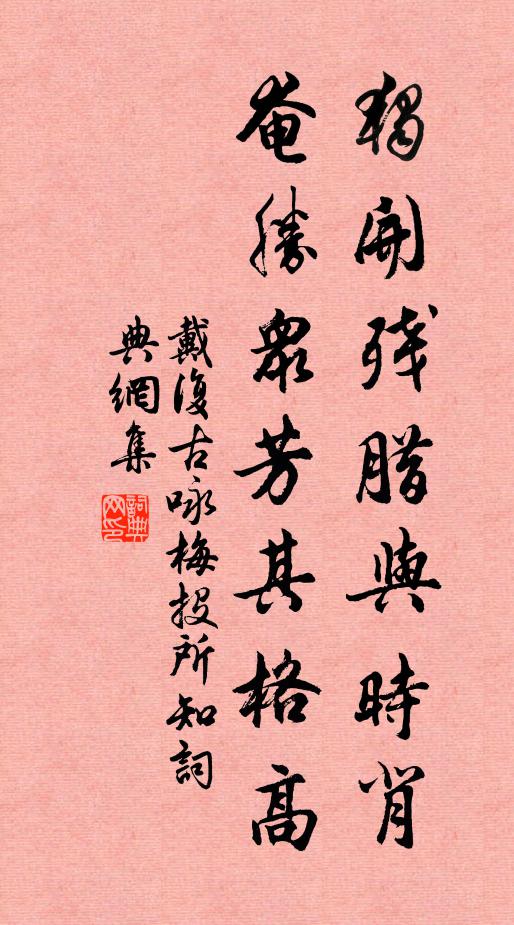 獨開残腊與時背
奄勝眾芳其格高
戴復古咏梅投所知詞
典網集
詞典網印